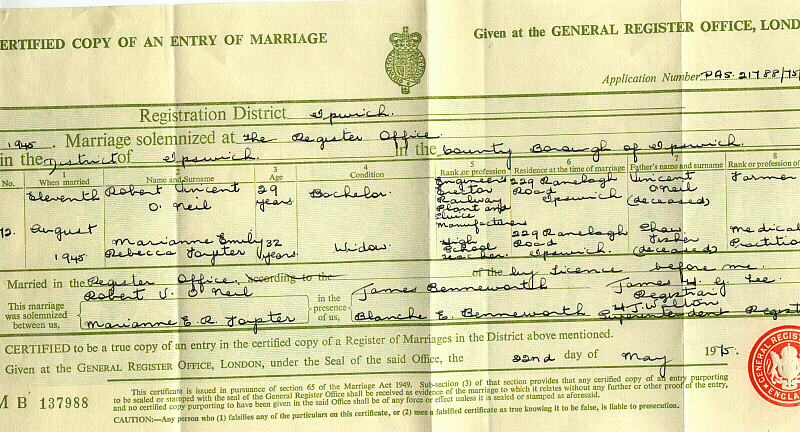 CERTIFIED COPY OF AN ENTRY OF MARRIAGE
Given at the GENERAL REGISTER OFFICE, LOND
Application Number PAS. 21788/75/
Registration District Ipswich.
1945. Marriage solemnized at the Register Office
in the District of Ipswich. in the County Borough of Ipswich.
No. 1 When married 2 Name and Surname 3 Age 4 Condition 5 Rank or profession 6 Residence at the time of marriage 7 Father's name and surname 8 Rank or profession of
Eleventh Robert Vincent 29 Bachelor Engineers 229 Ranelagh Vincent Farmer
O'Neil years. Road O'Neil
Railway Ipswich (deceased)
Plant and
12. August manufacturers
Marianne Emily 32 Widow High 229 Ranelagh Shaw Medical
1945 Rebecca years. School Road Fisher Practitio
Teacher. Ipswich. (deceased)
Married in the Register Office. according to the of the by Licence before me.
This marriage was solemnized between us, Robert V. O'Neil in the presence of us, James Benneworth James H. G. Lee
Registrar
Marianne E. R. Blanche E. Benneworth H.J. Walton
Superintendent Regist
CERTIFIED to be a true copy of an entry in the certified copy of a Register of Marriages in the District above mentioned.
Given at the GENERAL REGISTER OFFICE, LONDON, under the Seal of the said Office, the 22nd day of May 1975.
M B 137988
This certificate is issued in pursuance of section 65 of the Marriage Act 1949. Sub-section (3) of that section provides that any certified copy of an entry purporting
to be sealed or stamped with the seal of the General Register Office shall be received as evidence of the marriage to which it relates without any further or other proof of the entry,
and no certified copy purporting to have been given in the said Office shall be of any force or effect unless it is sealed or stamped as aforesaid.
CAUTION:—Any person who (1) falsifies any of the particulars on this certificate, or (2) uses a falsified certificate as true knowing it to be false, is liable to prosecution.
GENERAL REGISTER
ENGLA